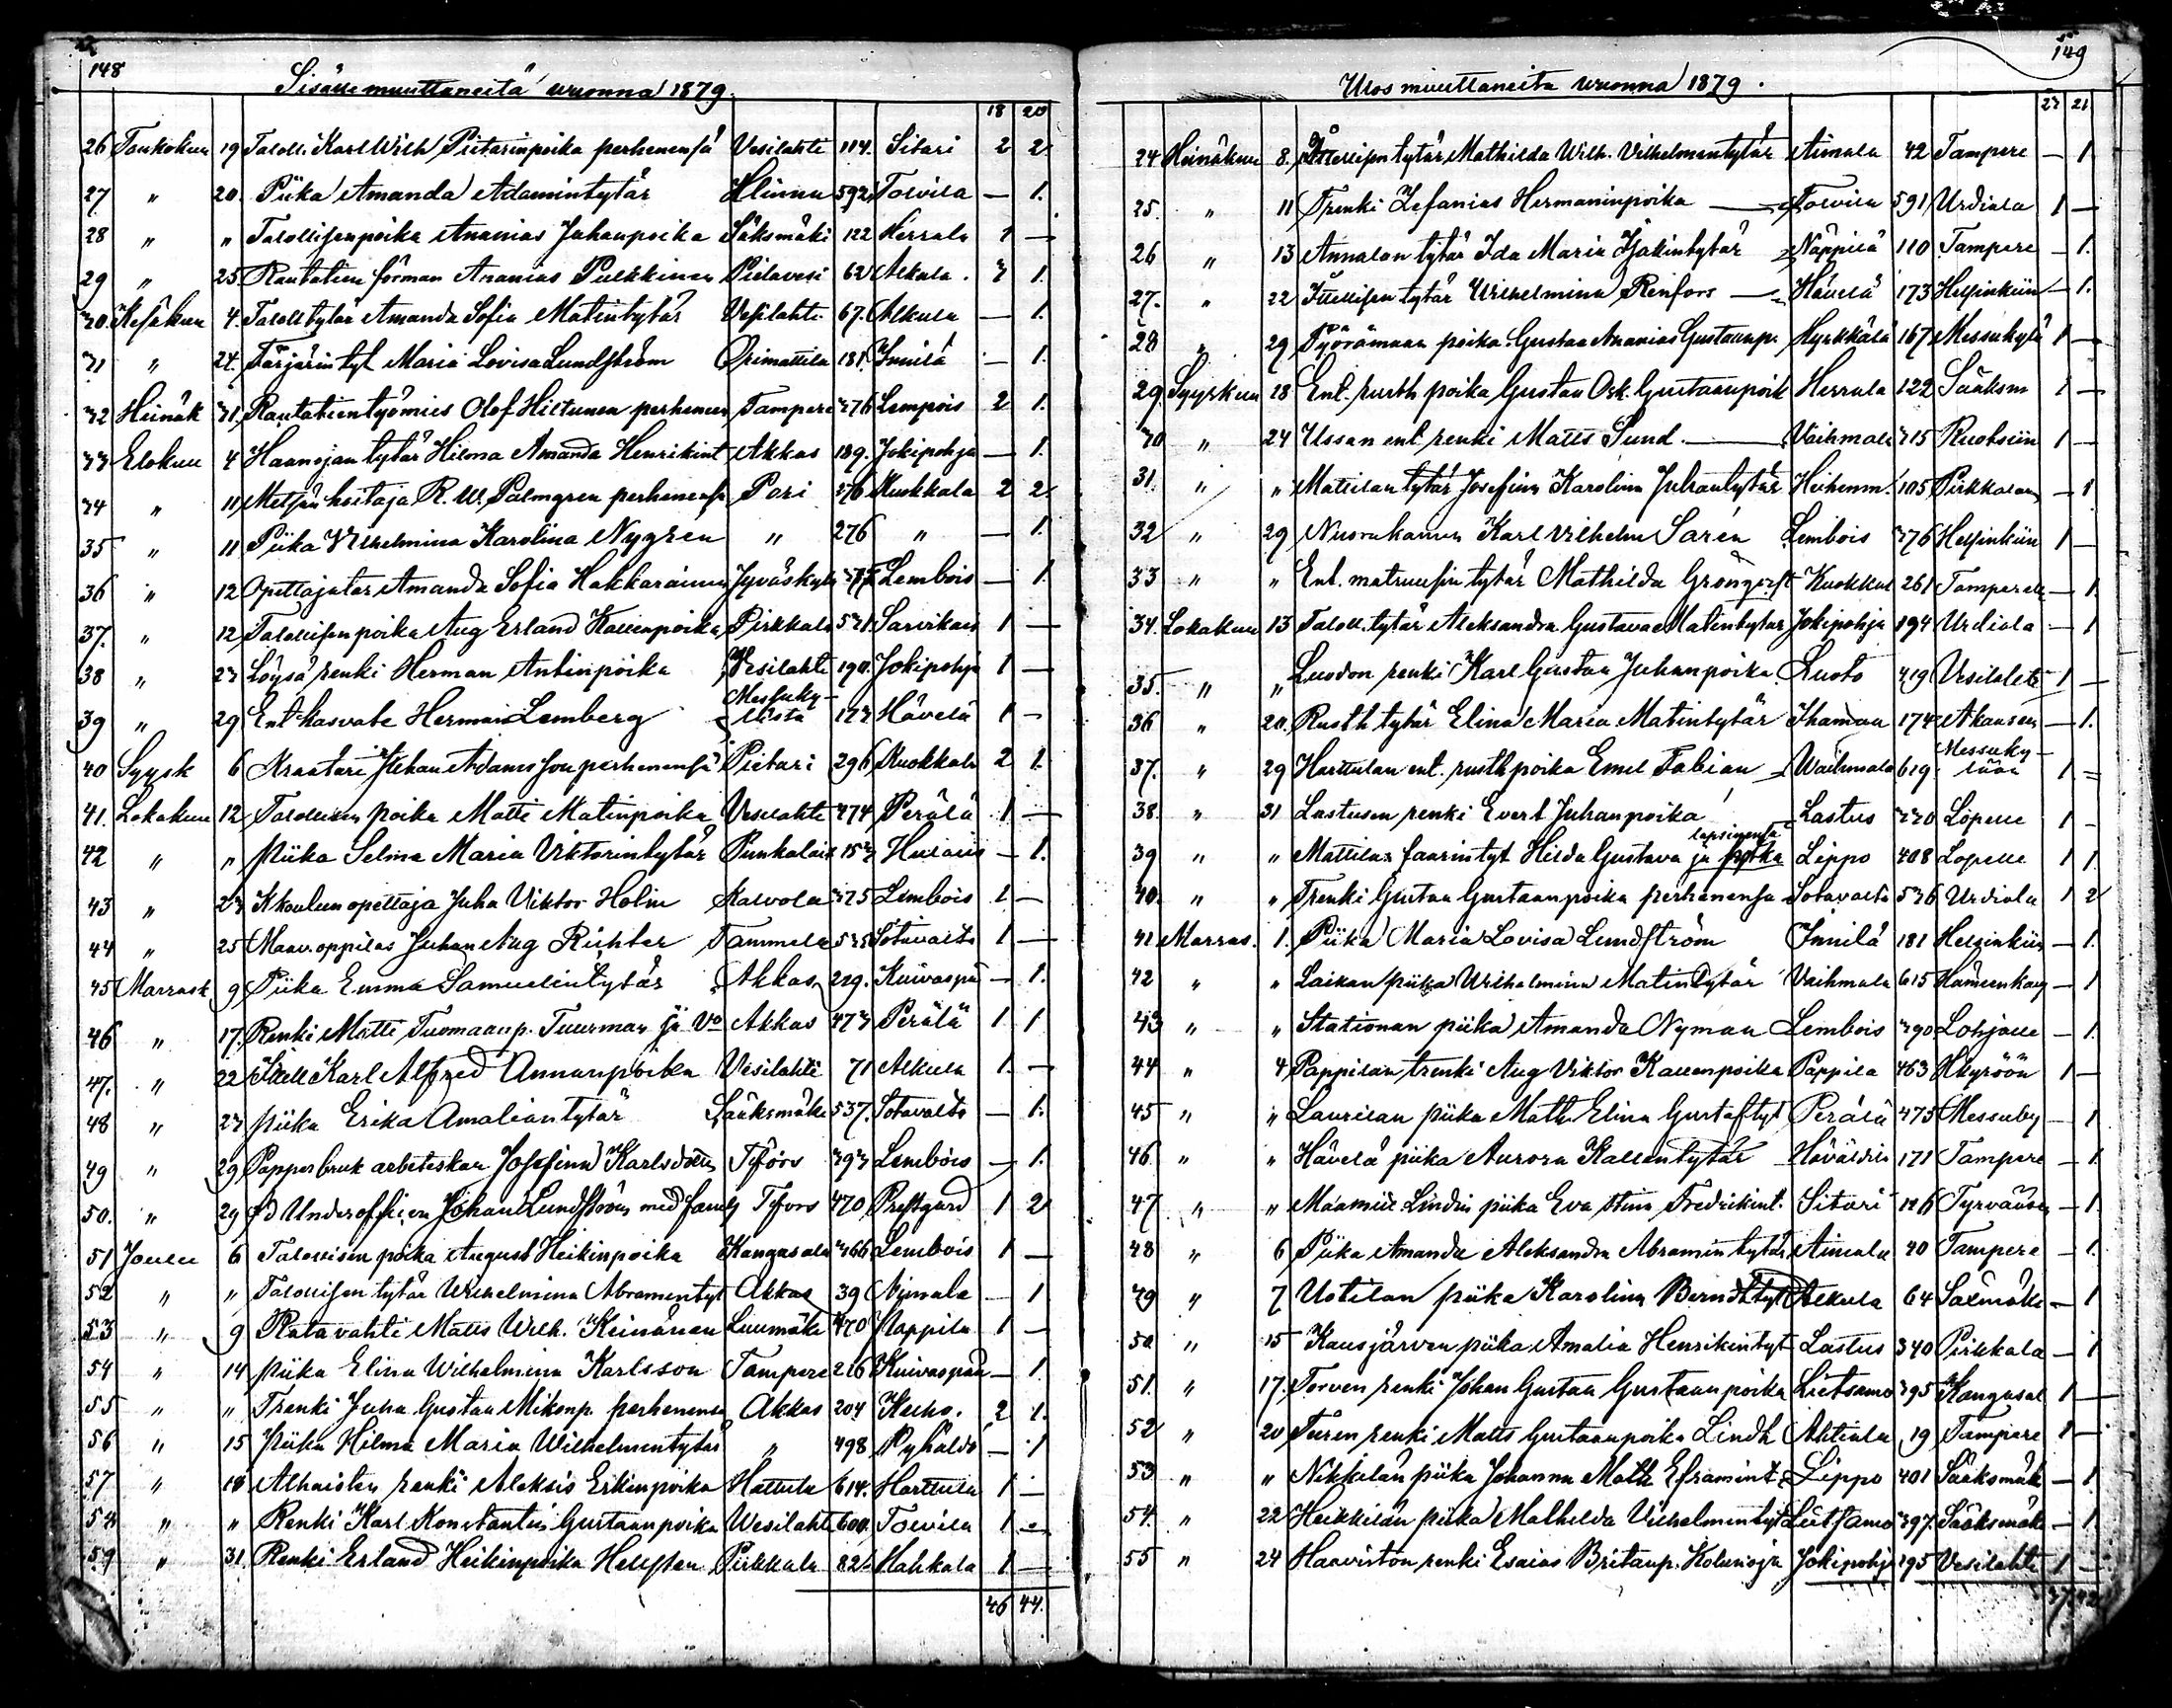 148
Sisälle muuttaneita vuonna 1879.
18 20
26 Toukokuu 19 Taloll. Karl Wilh Pietarinpoika perhenensä Vesilahti 114. Sitari 2 2
27 " 20. Piika Amanda Adamintytär 592 Toivila — 1.
28 " " Talollisenpoika Ananias Juhanpoika Sääksmäki 122 Herrala 1 —
29 " 25 Rautatien förman Ananias Pulkkinen Pielavesi 62 Alkula. 3 1.
30. Kesäkuu 4. Taloll tytär Amanda Sofia Matintytär Vesilahti 67. Alkula — 1.
31 " 24. Färjärin tyt Maria Lovisa Lundström Orimattila 181. Innilä — 1.
32 Heinäk 31. Rautatientyömies Olof Hiltunen perhenen Tampere 376 Lempois 2 1.
33 Elokuu 4 Haanojan tytär Hilma Amanda Henrikint Akkas 189. Jokipohja — 1.
34 " 11 Metsänhoitaja R. W. Palmgren perhenensä Pori 276 Kuokkala 2 2
35 " 11 Piika Vilhelmina Karolina Nygren " 276 " — 1.
36 " 12 Opettajatar Amanda Sofia Hakkarainen Jyväskylä 377 Lembois — 1.
37. " 12 Talollisen poika Aug Erland Kallenpoika Pirkkala 531. Sarvikais 1 —
38 " 23 Löysä renki Herman Antinpoika Vesilahti 190. Jokipohja 1 —
39 " 29 Ent kasvate Herman Lemberg Messuky-
lästä 173 Hävelä 1 —
40 Syysk 6 Kraatari Johan Adamsson perhenensä Pietari 296 Kuokkala 2 1.
41. Lokakuu 12 Talollisen poika Matti Matinpoika Vesilahti 474 Perälä 1 —
42 " " Piika Selma Maria Viktorintytär Punkalait 153 Hulais — 1.
43 " 23 Kkoulun opettaja Juha Viktor Holm Kalvola 375 Lembois 1 —
44 " 25 Maav. oppilas Juhan Aug Richter Tammela 535 Sotavalta 1 —
45 Marrask 9 Piika Emma Samuelintytär Akkas 229. Kuivaspä — 1.
46 " 17. Renki Matti Tuomaanp. Tuurman ja Vo Akkas 473 Perälä 1 1
47. " 22 Itsell Karl Alfred Annanpoika Vesilahti 71 Alkula 1. —
48 " 23 piika Erika Amaliantytär Sääksmäki 537. Sotavalta — 1.
49 " 29 Pappersbruk arbeteskan Josefina Karlsdotter Tyforss 393 Lembois — 1.
50. " 29 fd Underofficern Johan Lundström med familj Tyforss 470 Prestgård 1 2
51 Joulu 6 Talollisen poika August Heikinpoika Kangasala 366 Lembois 1 —
52 " " Talollisen tytär Wilhelmina Abramintyt Akkas 39 Aimala — 1
53 " 9 Ratavahti Matts Wilh. Keinänen Luumäki 470 Pappila 1 —
54 " 14 piika Elina Wilhelmina Karlsson Tampere 226 Kuivaspää — 1.
55 " " Trenki Juha Gustaa Mikonp. perhenensä Akkas 204 Keiho. 2 1.
56 " 15 Piika Hilma Maria Wilhelmintytär " 498 Pyhäldö — 1
57 " 18 Alhaisten renki Aleksis Erkinpoika Hattula 614. Harttula 1 —
58 " " Renki Karl Konstantin Gustaanpoika Wesilahti 600. Toivila 1 —
59 " 31. Renki Erland Heikinpoika Hellsten Pirkkala 82. Hahkala 1 —
46 44.
149
Ulos muuttaneita vuonna 1879.
23 21
24 Heinäkuu 8. Itsellisen tytär Mathilda Wilh. Vilhelmintytär Aimala 42 Tampere — 1
25. " 11 Trenki Zefanias Hermaninpoika — Toivila 591 Urdiala 1 —
26 " 13 Annalan tytär Ida Maria Isakintytär Näppilä 110 Tampere — 1.
27. " 22 Itsellisen tytär Wilhelmina Renfors — Hävelä 173 Helsinkiin — 1.
28 " 29 Pyörämaan poika Gustaa Ananias Gustaanpo Hyrkkälä 167 Messukylä 1 —
29. Syyskuu 18 Ent. rusth poika Gustaa Osk. Gustaanpoik Herrala 122 Sääksm 1 —
30 " 24 Ussan ent. renki Matts Sund. — Vaihmala 315 Ruotsiin 1 —
31. " " Mattilan tytär Josefina Karolina Juhantytär Heihenm. 105 Pirkkalaan — 1
32 " 29 Nuorukainen Karl Vilhelm Sarén Lembois 376 Helsinkiin 1 —
33 " " Ent. matruusin tytär Mathilda Grönqvist Kuokkal 261 Tamperelle — 1.
34. Lokakuu 13 Taloll. tytär Aleksandra Gustava Matintytär Jokipohja 194 Urdiala — 1
35. " " Luodon renki Karl Gustaa Juhanpoika Luoto 419 Vesilahti 1 —
36 " 20. Rusth tytär Elina Maria Matintytär Ihamaa 174 Akaasen — 1.
37. " 29 Harttulan ent. rusth poika Emil Fabian — Waihmala 619 Messuky-
lään 1 —
38. " 31 Lastusen renki Evert Juhanpoika Lastus 330 Lopelle 1 —
39 " " Mattilan faarintyt Hilda Gustava ja lapsinensa Lippo 408 Lopelle 1 1
40. " " Trenki Gustaa Gustaanpoika perhenensa Sotavalta 536 Urdiala 1 2
41 Marras. 1. Piika Maria Lovisa Lundström Innilä 181 Helsinkiin — 1.
42 " " Laikan piika Wilhelmina Matintytär Vaihmala 615 Hämeenkary — 1
43 " " Stationan piika Amanda Nyman Lembois 390. Lohjalle — 1.
44 " 4 Pappilan trenki Aug Viktor Kallenpoika Pappila 463 Hkyröön 1 —
45 " " Laurilan piika Math. Elina Gustaftyt Perälä 475 Messuky — 1
46 " " Hävelä piika Aurora Kallentytär 171 Tampere — 1.
47 " " Maamies Lindin piika Eva Stina Fredrikint. Sitari 126 Tyrvääseen — 1.
48 " 6 Piika Amanda Aleksandra Abramintytär Aimala 40 Tampere — 1.
49 " 7 Uotilan piika Karolina Alkula 64 — 1
50 " 15 Kausjärven piika Amalia Henrikintyt Lastus 340 Pirkkala — 1
51. " 17. Torven renki Johan Gustaa Gustaanpoika Lietsamo 395 Kangasal 1 —
52 " 20 Turen renki Matts Gustaanpoika Lindh Ahtiala 19 Tampere 1 —
53 " " Nikkilän piika Johanna Math Eframint. Lippo 401 Sääksmäk — 1.
54. " 22 Heikkilän piika Mathilda Vilhelmintyt Lietsamo 397. Sääksmäk — 1.
55 " 24 Haaviston renki Esaias Britanp. Kolunoja Jokipohj 195 Vesilahti 1 —
37 42